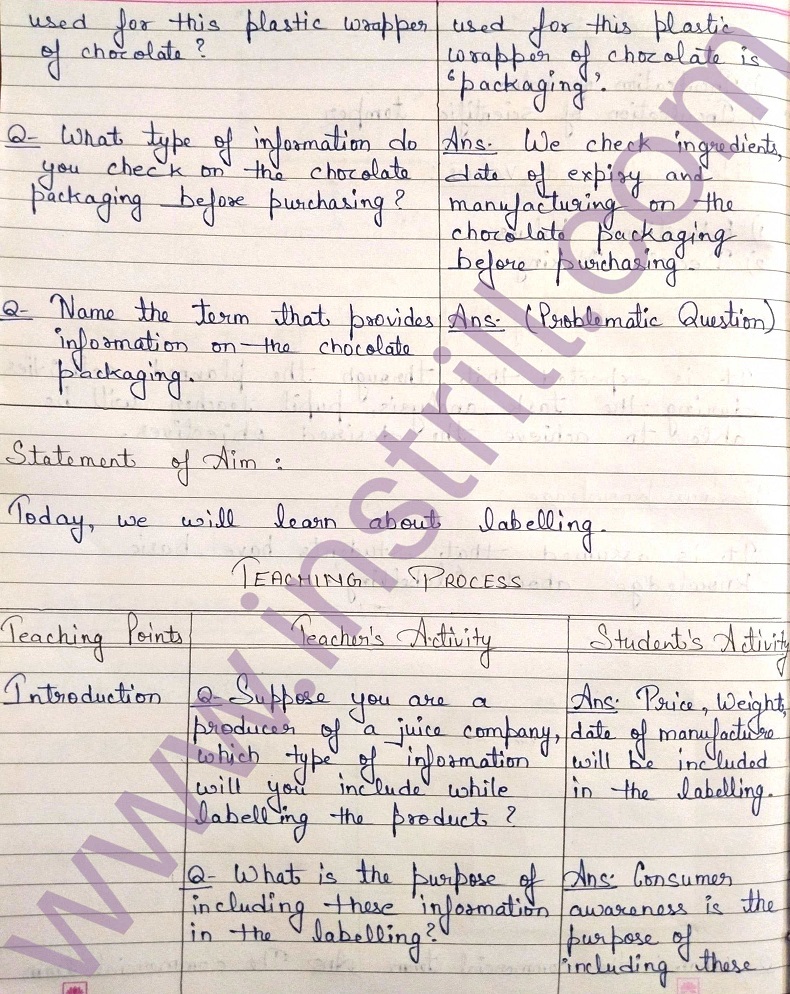 used for this plastic wrapper
of chocolate ?
used for this plastic
wrapper of chocolate is
'packaging'.
Q- What type of information do
you check on the chocolate
packaging before purchasing ?
Ans. We check ingredients,
date of expiry and
manufacturing on the
chocolate packaging
before purchasing.
Q- Name the term that provides
information on the chocolate
packaging.
Ans. (Problematic Question)
Statement of Aim :
Today, we will learn about labelling.
TEACHING PROCESS
Teaching Points
Teacher's Activity
Student's Activity
Introduction
Q- Suppose you are a
producer of a juice company,
which type of information
will you include while
labelling the product ?
Ans. Price, Weight,
date of manufacture
will be included
in the labelling.
Q- What is the purpose of
including these information
in the labelling?
Ans. Consumer
awareness is the
purpose of
including these
www.instrill.com